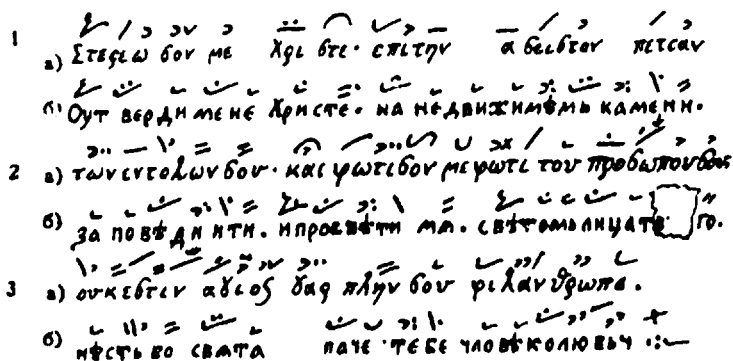 1 а) Στερεω σον με Χρι στε· επιτην α σειστον πετραν
б) Оут верди мене Христе. на недвижимѣмь камени.
2 а) των εντολων σου· και φωτισον με φωτι του προσωπου σου
б) За повѣ ди и ти. и просвѣти мѧ. свѣтомь лица тв го.
3 а) ουκ εστιν αγιος γαρ πλην σου φιλανθρωπε.
б) нѣсть бо свѧта паче тебе чловѣколюбьч .:~